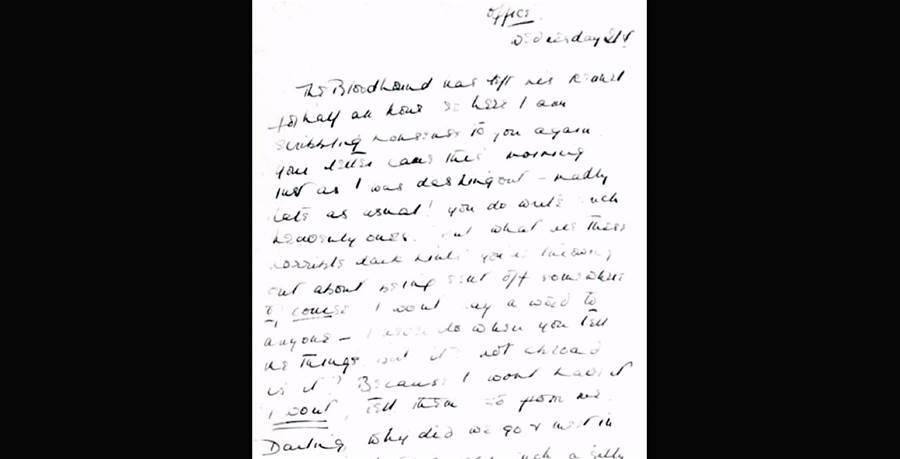 Office
Wednesday 21st
The Bloodhound has left his kennel
for half an hour so here I am
scribbling nonsense to you again
your letter came this morning
just as I was dashing out – madly
late as usual! you do write such
heavenly ones. But what are these
horrible dark hints you're throwing
out about being sent off somewhere
of course I won't say a word to
anyone – I never do when you tell
me things but it's not abroad
is it? Because I wont have it
I wont, tell them so from me.
Darling why did we go & meet in
such a silly